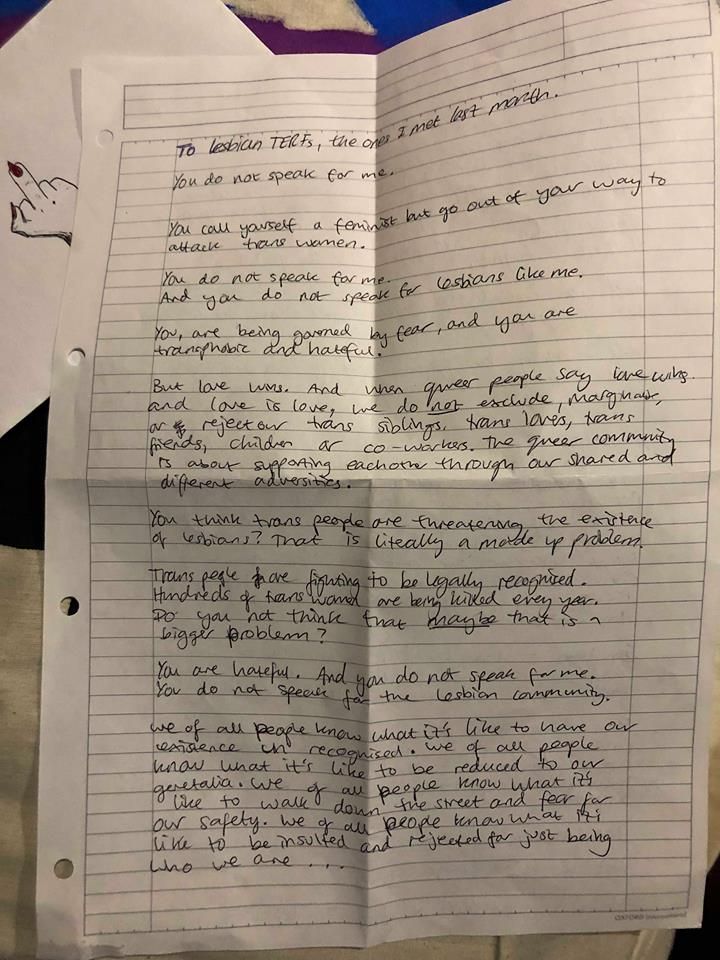 To lesbian TERFs, the ones I met last month.
You do not speak for me.
You call yourself a feminist but go out of your way to
attack trans women.
You do not speak for me.
And you do not speak for lesbians like me.
You, are being governed by fear, and you are
transphobic and hateful.
But love wins. And when queer people say love wins
and love is love, we do not exclude, marginalise,
or reject our trans siblings, trans lovers, trans
friends, children or co-workers. The queer community
is about supporting eachother through our shared and
different adversities.
You think trans people are threatening the existence
of lesbians? That is literally a made up problem.
Trans people are fighting to be legally recognised.
Hundreds of trans women are being killed every year.
Do you not think that maybe that is a
bigger problem?
You are hateful. And you do not speak for me.
You do not speak for the lesbian community.
We of all people know what it's like to have our
existence un recognised. We of all people
know what it's like to be reduced to our
genetalia. We of all people know what it's
like to walk down the street and fear for
our safety. We of all people know what it's
like to be insulted and rejected for just being
who we are ...
OXFORD